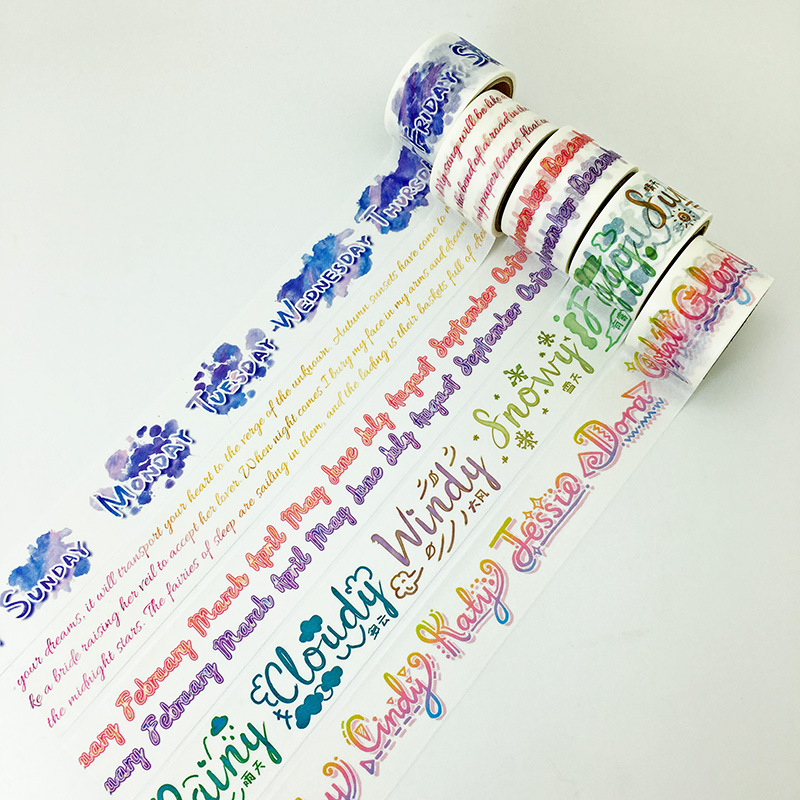 SUNDAY MONDAY TUESDAY WEDNESDAY THURSDAY FRIDAY S
your dreams, it will transport your heart to the verge of the unknown. Autumn sunsets have come to
ke a bride raising her veil to accept her lover. When night comes I bury my face in my arms and dream
the midnight stars. The fairies of sleep are sailing in them, and the lading is their baskets full of dre
My song will be like
the bend of a road in the
my paper boats float on
uary February March April May June July August September Octo vember December
uary February March April May June July August September Octo vember December
Rainy 雨天 Cloudy 多云 Windy 大风 Snowy 雪天 Foggy 有雾 Su
Cindy Katy Jessie Dora Glor